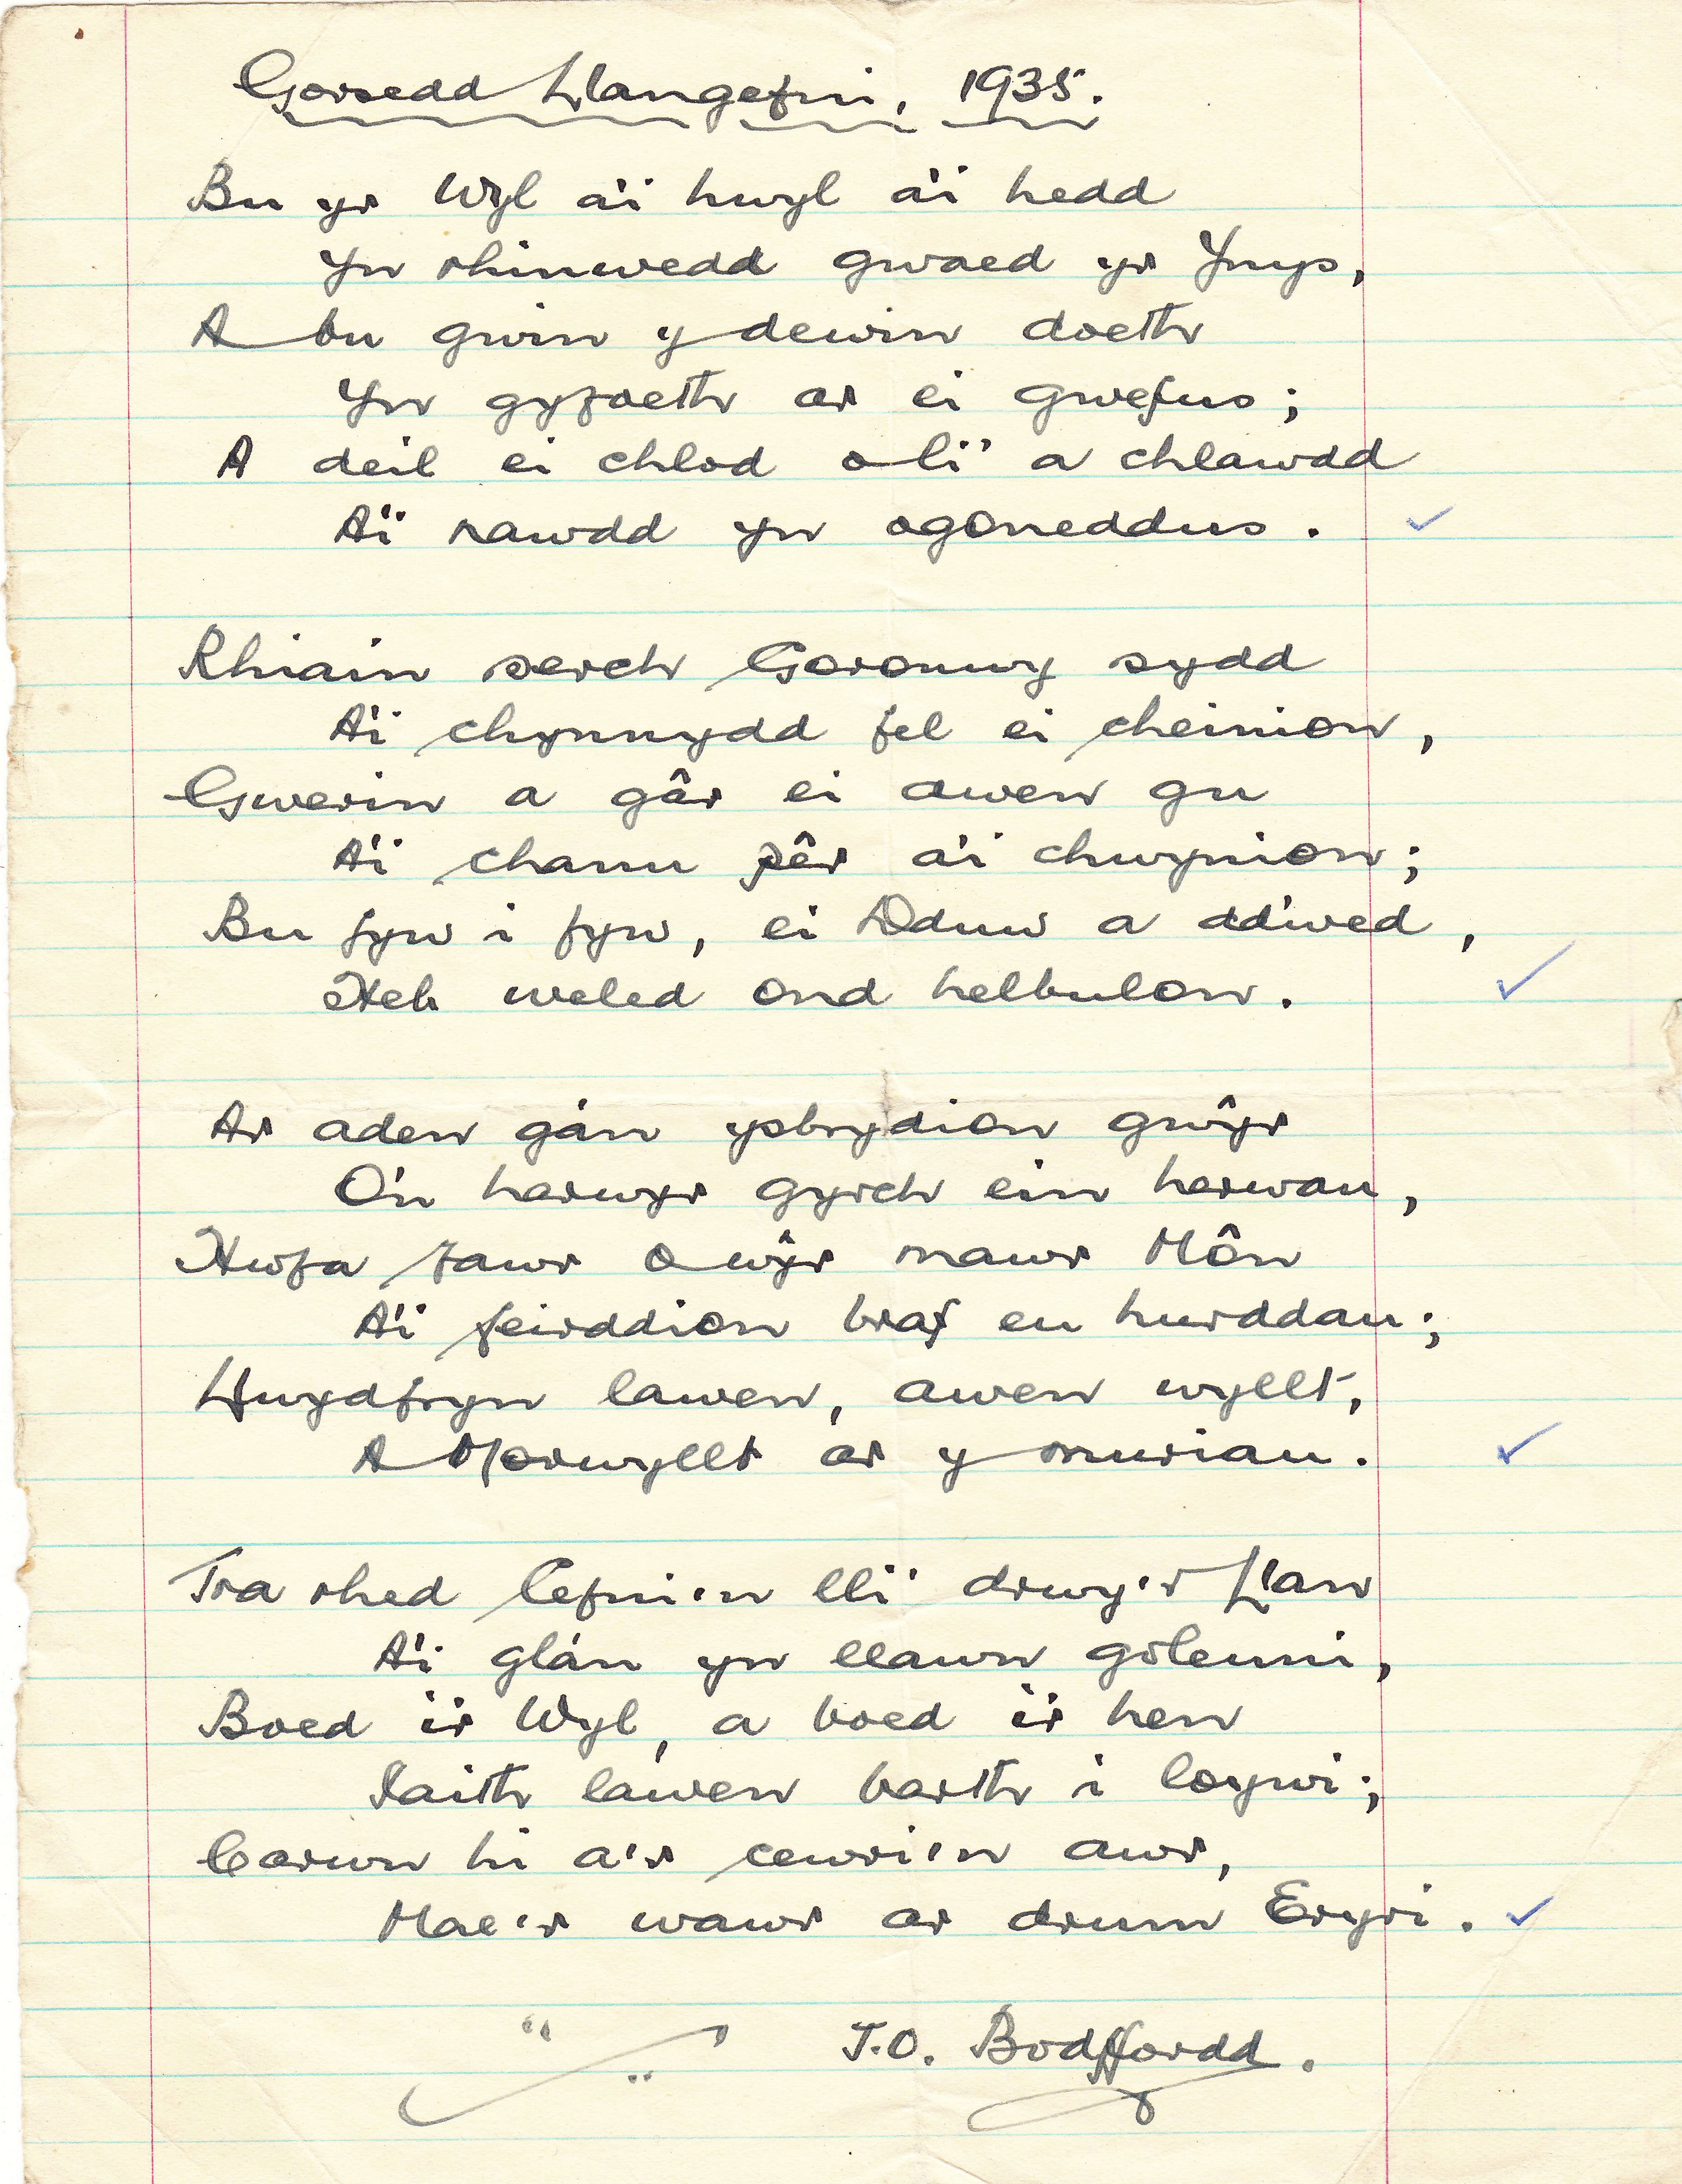 Gorsedd Llangefni, 1935.
Bu yr Wyl a'i hwyl a'i hedd
Yn rhinwedd gwaed yr Ynys,
A bu gwin y dewin doeth
Yn gyfoeth ar ei gwefus;
A deil ei chlod o li' a chlawdd
A'i nawdd yn ogoneddus.
Rhiain serch Goronwy sydd
A'i chynnydd fel ei cheinion,
Gwerin a gâr ei awen gu
A'i chanu pêr a'i chwynion;
Bu fyw i fyw, ei Dduw a ddiwed,
Heb weled ond helbulon.
Ar aden gân ysbrydion gwŷr
O'n harwyr gyrch ein herwau,
Hwfa fawr o wŷr mawr Môn
A'i feirddion braf eu hurddau;
Llwydfryn lawen, awen wyllt,
A Morwyllt ar y muriau.
Tra rhed Cefni'n lli' drwy'r Llan
A'i glân yn llawn goleuni,
Boed i'r Wyl, a boed i'r hen
Iaith lawen barth i loywi;
Carwn hi a'r cewri'n awr,
Mae'r wawr ar drum Eryri.
T.O. Bodffordd.